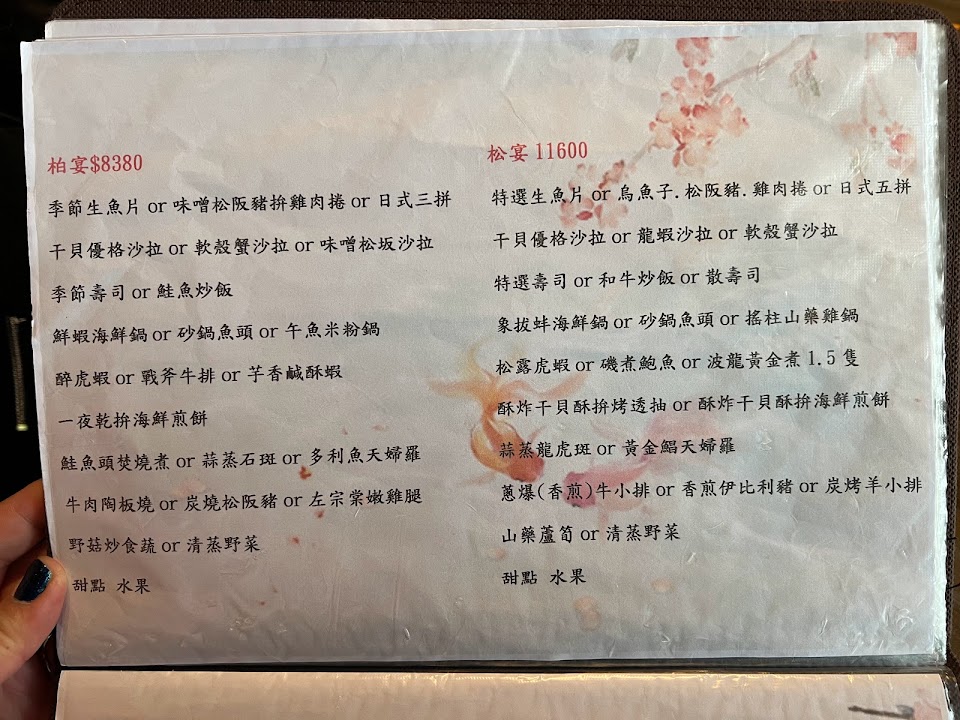 柏宴$8380
季節生魚片 or 味噌松阪豬拚雞肉捲 or 日式三拼
干貝優格沙拉 or 軟殼蟹沙拉 or 味噌松坂沙拉
季節壽司 or 鮭魚炒飯
鮮蝦海鮮鍋 or 砂鍋魚頭 or 午魚米粉鍋
醉虎蝦 or 戰斧牛排 or 芋香鹹酥蝦
一夜乾拚海鮮煎餅
鮭魚頭焚燒煮 or 蒜蒸石斑 or 多利魚天婦羅
牛肉陶板燒 or 炭燒松阪豬 or 左宗棠嫩雞腿
野菇炒食蔬 or 清蒸野菜
甜點 水果
松宴 11600
特選生魚片 or 烏魚子.松阪豬.雞肉捲 or 日式五拼
干貝優格沙拉 or 龍蝦沙拉 or 軟殼蟹沙拉
特選壽司 or 和牛炒飯 or 散壽司
象拔蚌海鮮鍋 or 砂鍋魚頭 or 搖柱山藥雞鍋
松露虎蝦 or 磯煮鮑魚 or 波龍黃金煮 1.5 隻
酥炸干貝酥拚烤透抽 or 酥炸干貝酥拚海鮮煎餅
蒜蒸龍虎斑 or 黃金鯧天婦羅
蔥爆(香煎)牛小排 or 香煎伊比利豬 or 炭烤羊小排
山藥蘆筍 or 清蒸野菜
甜點 水果